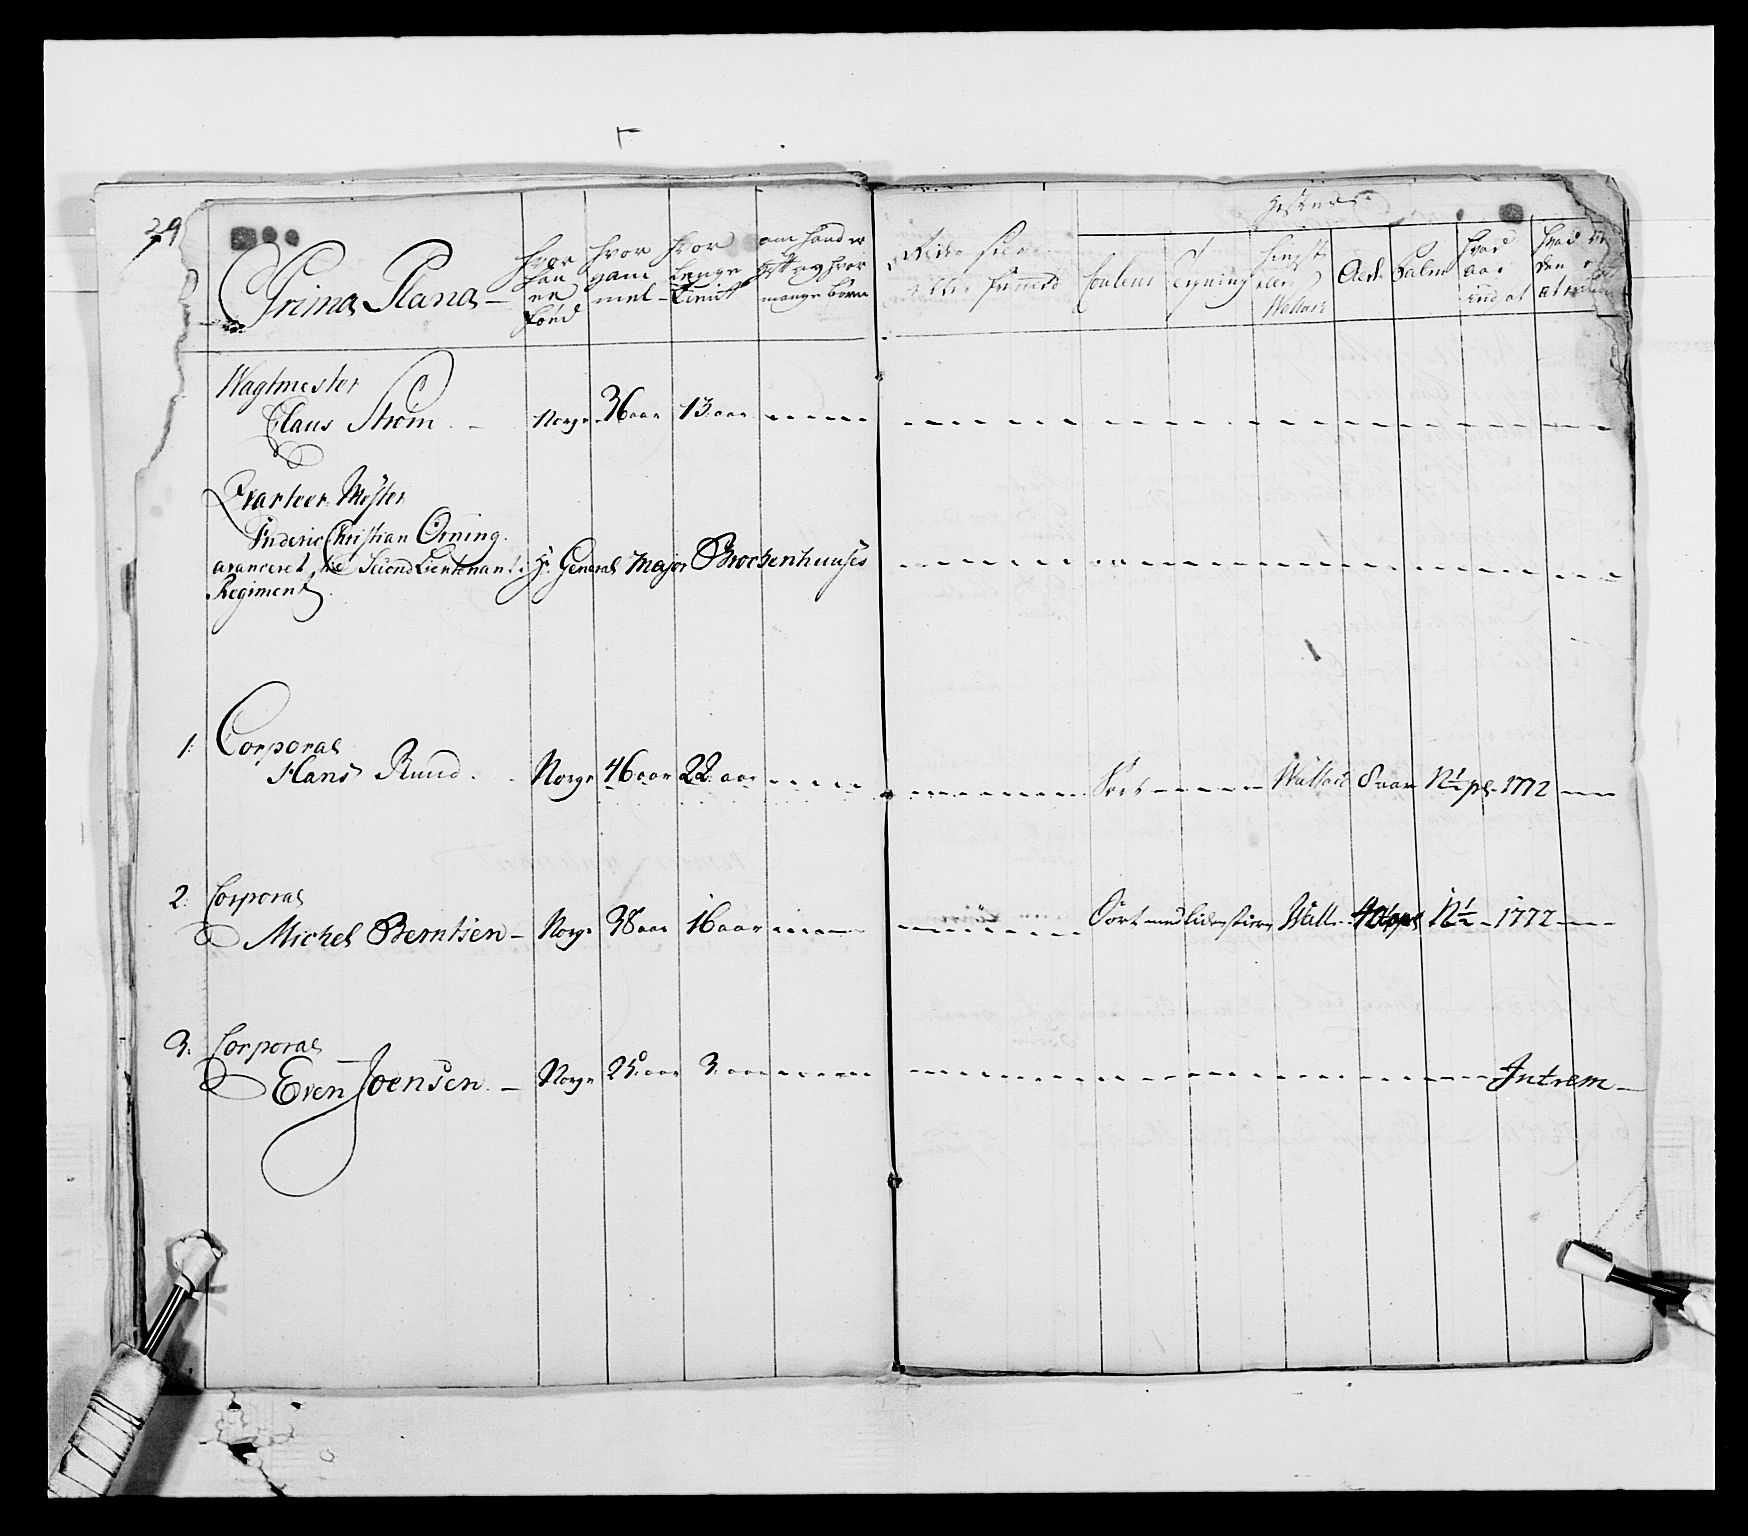 29
Prima Plana
Hvor han er Fød
Hvor gam mel
Hvor Længe Tient
om hand er gift og hvor mange børn
Hester
Couleur
Tegning
Hingst eller Wallack
Ald
Palm
Hvad aar
Wagtmester
Claus Strøm Norge 36 aar 13 aar
Qvarteer Mester
Frideric Christian Orning
avanceret til Second Lieutenant i Hr. General Major Brockenhuuses
Regiment
1: Corporal
Hans Ruud Norge 46 aar 22 aar Sort Wallack 8 aar N 1/2 1772
2: Corporal
Michel Berntsen Norge 38 aar 16 aar Sort med liden stiern Wall N 1/2 1772
3: Corporal
Even Joensen Norge 25 aar 3 aar Intrem